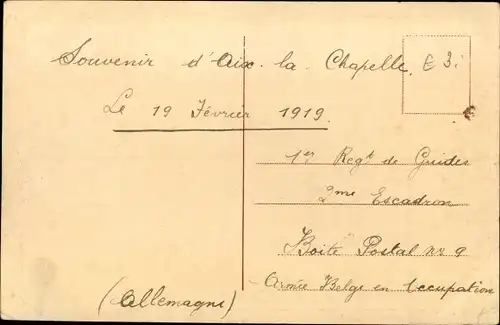 Souvenir d'Aix-la-Chapelle.
Le 19 Février 1919.
1er Regt de Guides
2me Escadron
Boite Postal nr 9
Armée Belge en Occupation
(Allemagne)